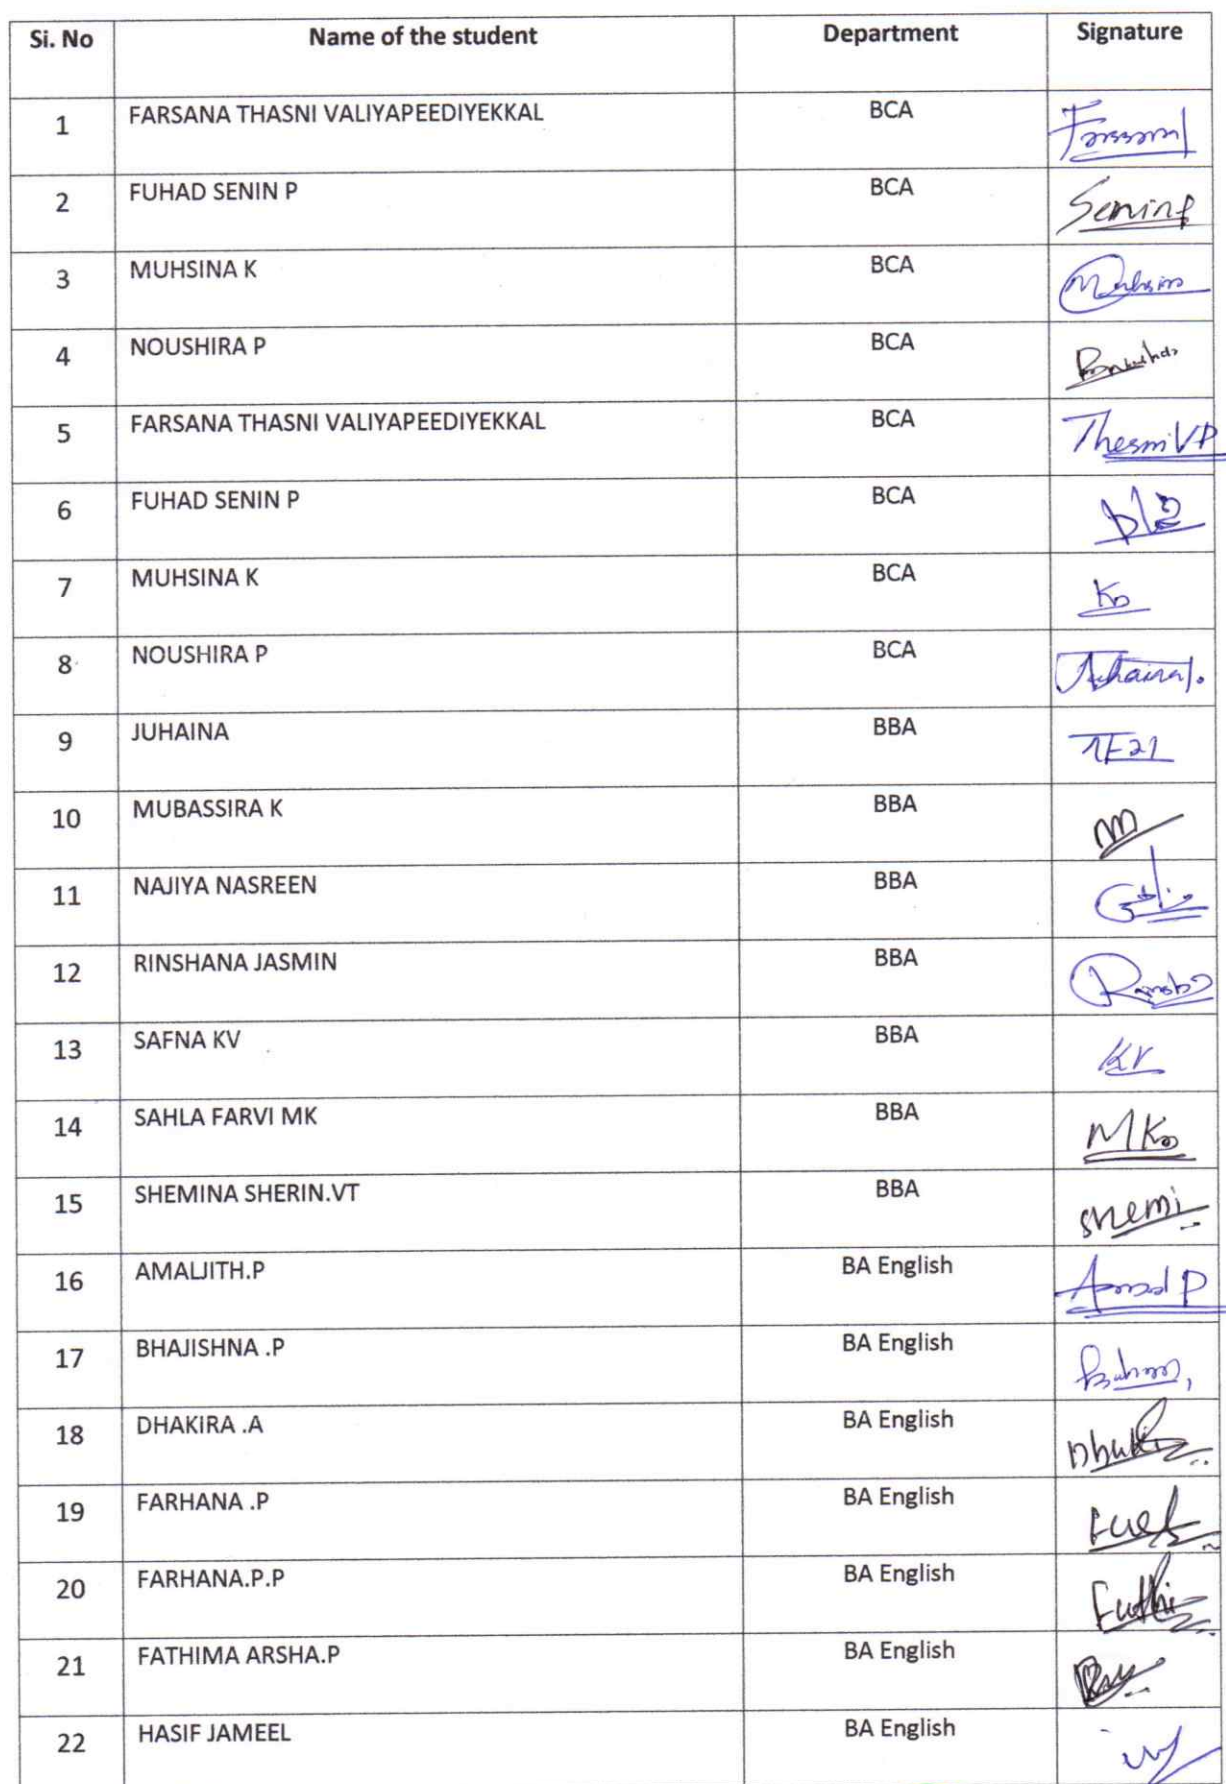 Si. No Name of the student Department Signature
1 FARSANA THASNI VALIYAPEEDIYEKKAL BCA
2 FUHAD SENIN P BCA Senin P
3 MUHSINA K BCA
4 NOUSHIRA P BCA
5 FARSANA THASNI VALIYAPEEDIYEKKAL BCA Thesmi VP
6 FUHAD SENIN P BCA
7 MUHSINA K BCA
8 NOUSHIRA P BCA
9 JUHAINA BBA
10 MUBASSIRA K BBA
11 NAJIYA NASREEN BBA
12 RINSHANA JASMIN BBA
13 SAFNA KV BBA KV
14 SAHLA FARVI MK BBA
15 SHEMINA SHERIN.VT BBA shemi
16 AMALJITH.P BA English
17 BHAJISHNA .P BA English
18 DHAKIRA .A BA English
19 FARHANA .P BA English
20 FARHANA.P.P BA English
21 FATHIMA ARSHA.P BA English
22 HASIF JAMEEL BA English